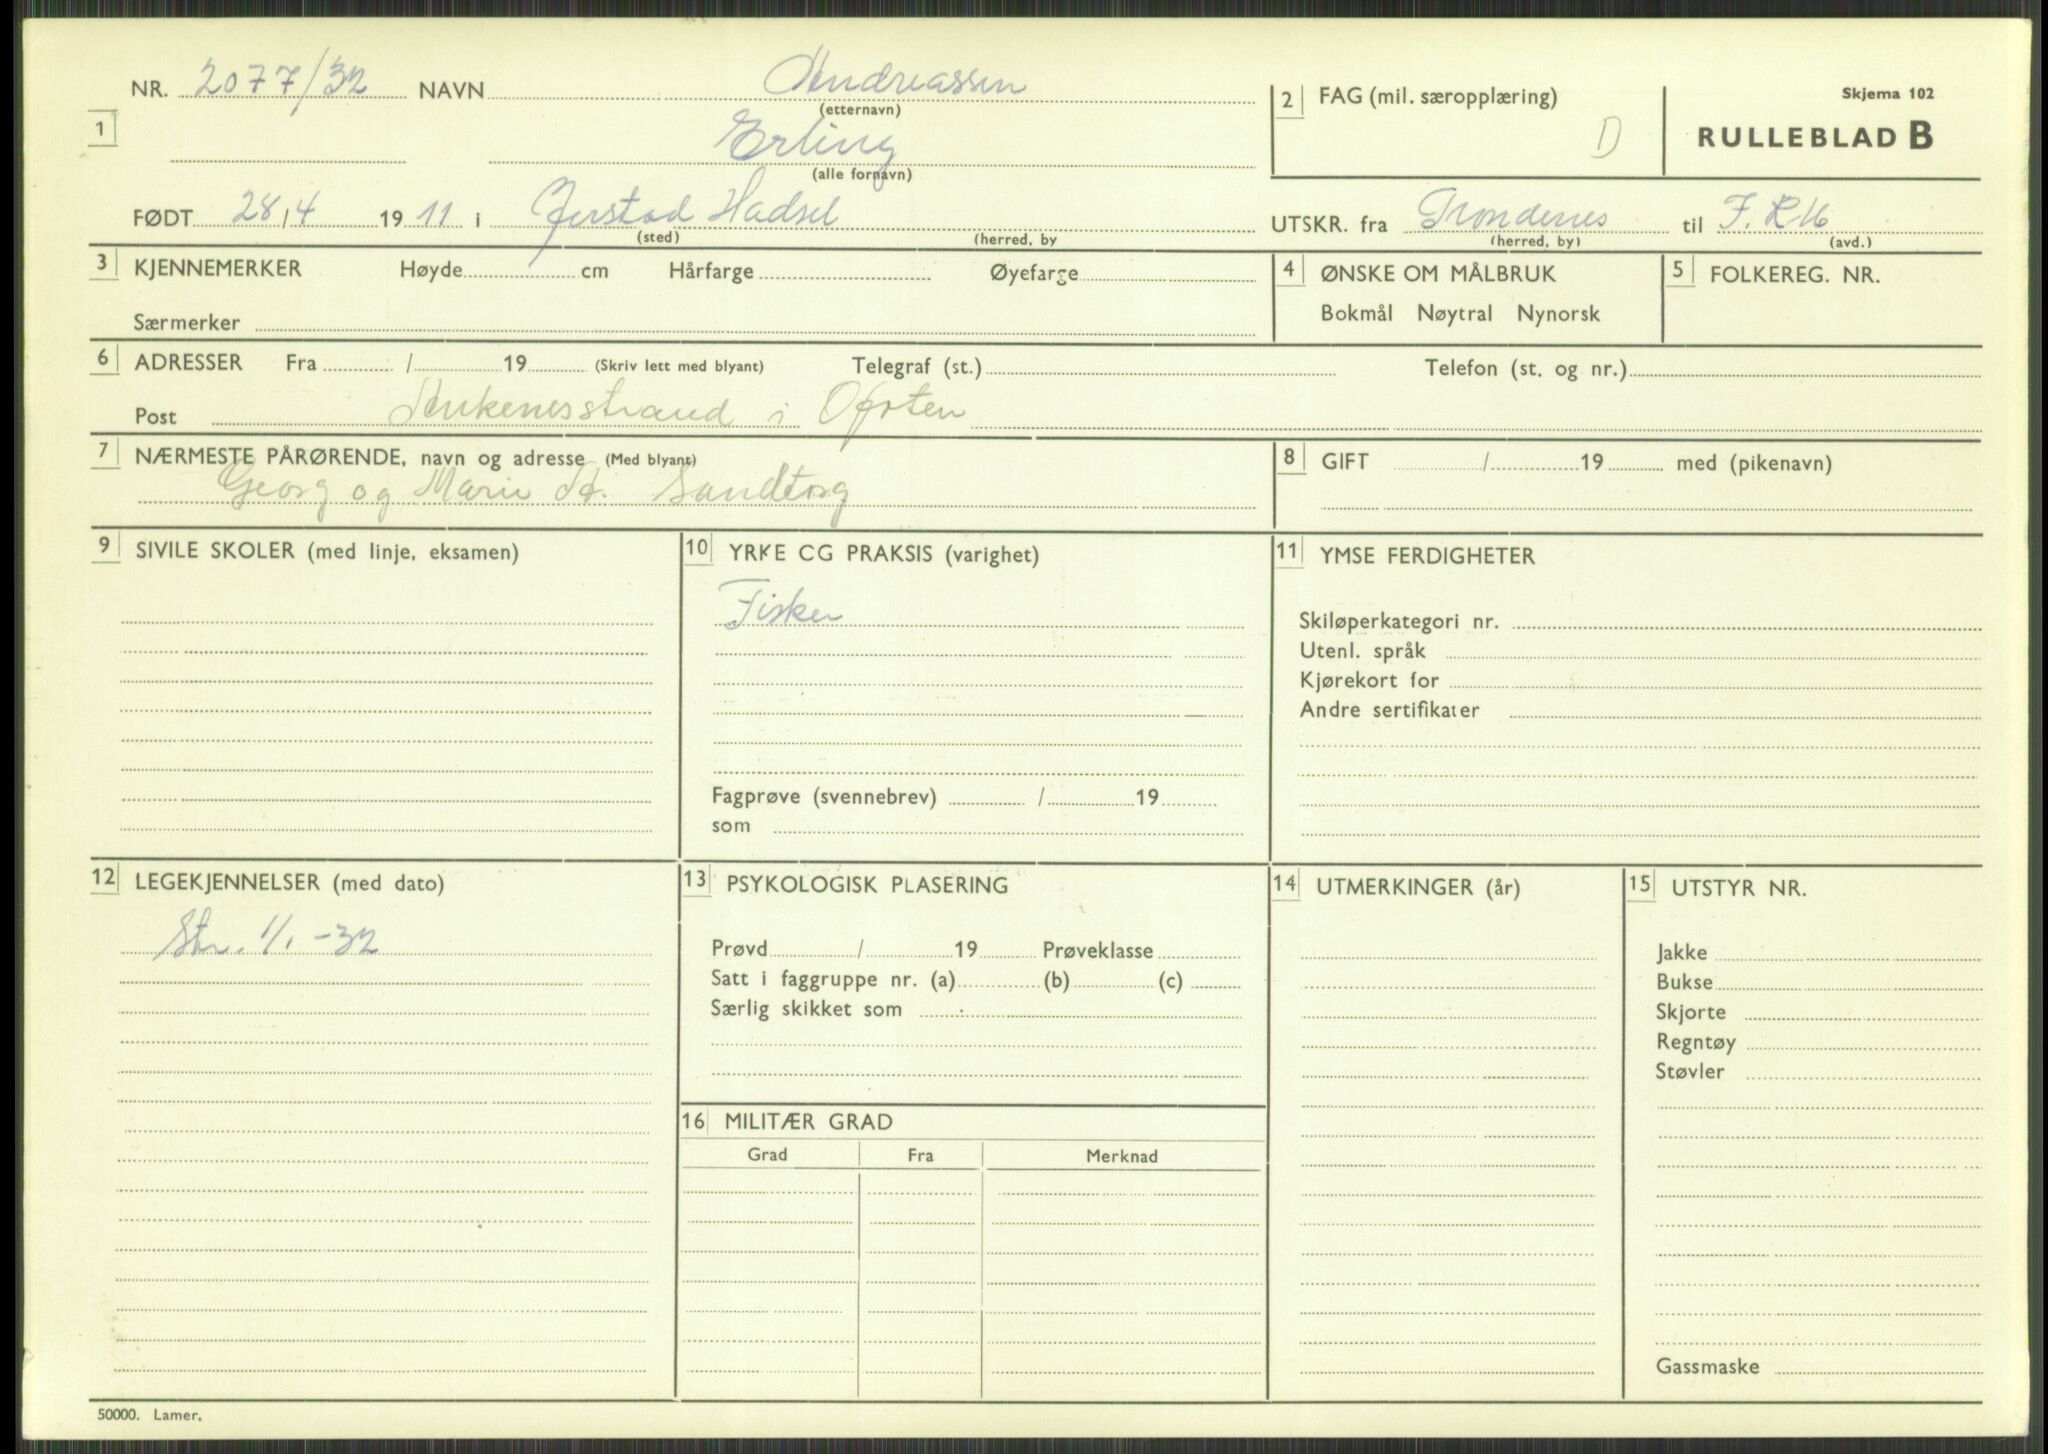 NR. 2077/32 NAVN Andreassen
(etternavn)
1
Erling
(alle fornavn)
FØDT 28/4 1911 i Jerstad Hadsel
(sted) (herred, by
2 FAG (mil. særopplæring)
D
Skjema 102
RULLEBLAD B
UTSKR. fra Trondenes til F.R16
(herred, by) (avd.)
3 KJENNEMERKER Høyde cm Hårfarge Øyefarge
Særmerker
4 ØNSKE OM MÅLBRUK
Bokmål Nøytral Nynorsk
5 FOLKEREG. NR.
6 ADRESSER Fra / 19 (Skriv lett med blyant) Telegraf (st.) Telefon (st. og nr.)
Post Ankenesstrand i Ofoten
7 NÆRMESTE PÅRØRENDE, navn og adresse (Med blyant)
Georg og Marie A. Sandtorg
8 GIFT / 19 med (pikenavn)
9 SIVILE SKOLER (med linje, eksamen)
10 YRKE CG PRAKSIS (varighet)
Fisker
Fagprøve (svennebrev) / 19
som
11 YMSE FERDIGHETER
Skiløperkategori nr.
Utenl. språk
Kjørekort for
Andre sertifikater
12 LEGEKJENNELSER (med dato)
Str. 1/1-32
13 PSYKOLOGISK PLASERING
Prøvd / 19 Prøveklasse
Satt i faggruppe nr. (a) (b) (c)
Særlig skikket som
14 UTMERKINGER (år)
15 UTSTYR NR.
Jakke
Bukse
Skjorte
Regntøy
Støvler
Gassmaske
16 MILITÆR GRAD
Grad Fra Merknad
50000. Lamer.